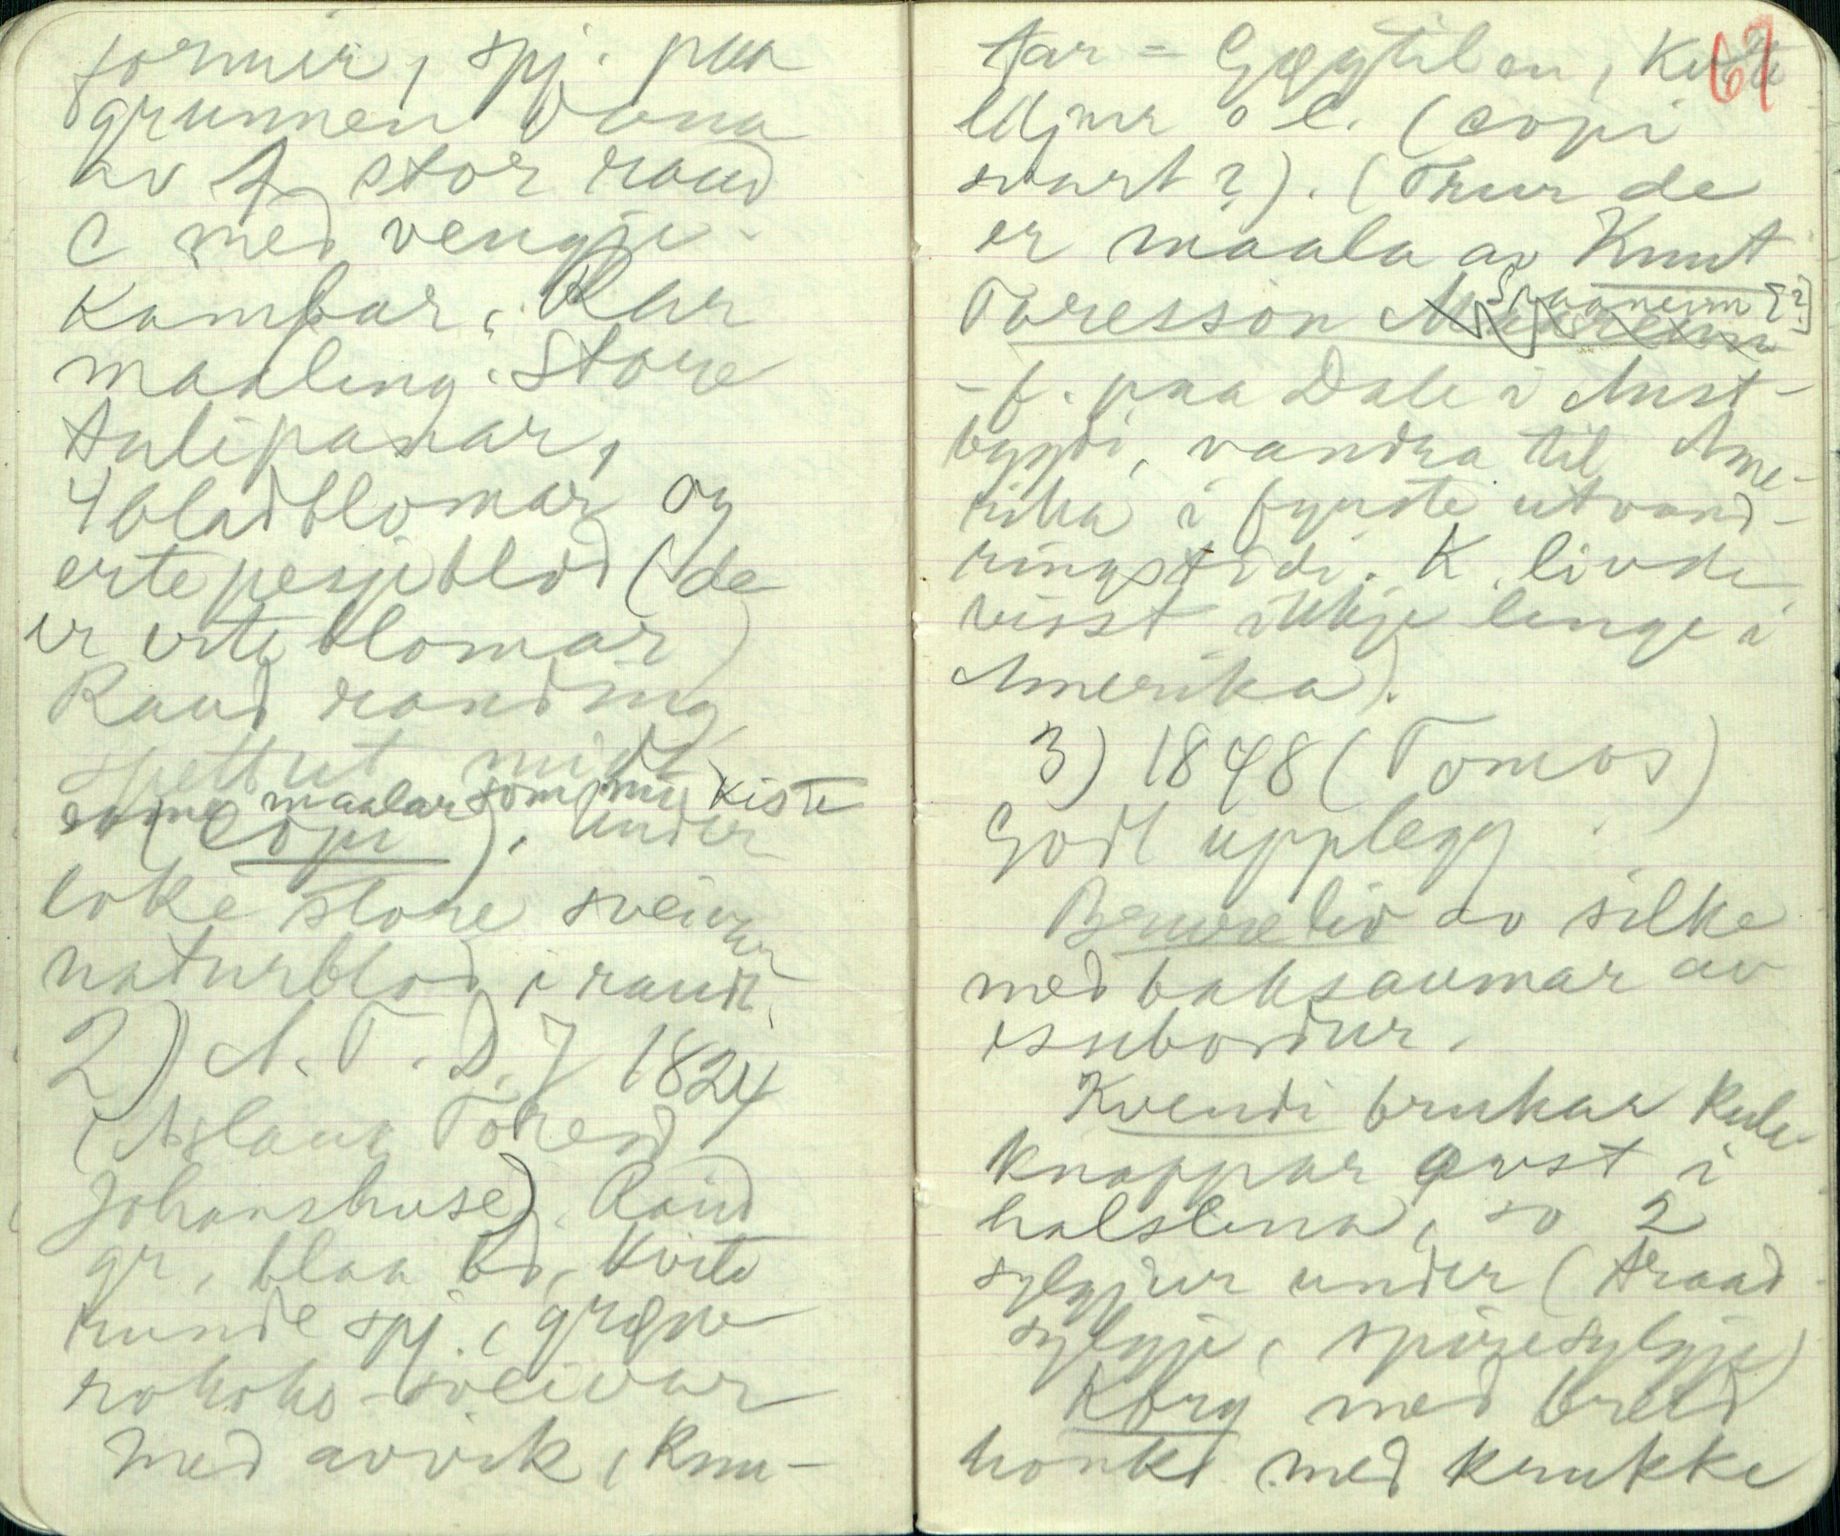 former, spj. paa
grunnen vona
av 1 stor raud
C med vengje
kambar, klar
maaling. Store
tulipanar,
4bladblomar og
ertepesjeblod (de
er erteblomar)
Raud randing
spettut midt
same maalar som nr. kiste
(copi). Under
loke store sveivar
naturblod i raudt.
2) A. T. D. J 1824
(Aslaug Toresd
Johanshuse). Raud
gr, blaa bd, kvite
runde spj., grøne
rokoko-sveivar
med avvik, knu-
67
tar = Gøytil en, kvite
liljur o l. (copi
svart?). (Trur de
er maala av Knut
Toresson Svaaneim [?]
- f. paa Dale i Aust-
bygdi, vandra til Ame-
rika i fyrste utvand-
ringstidi. K. livde
visst ikkje lenge i
Amerika).
3) 1848 (Tomos)
Godt upplegg.
Beureliv av silke
med baksaumar av
isnibordur.
Kvendi brukar kule
knappar øvst i
halslina, so 2
sylgjur under (traad
sylgje, spiresylgje)
Korg med breid
honk med krukke